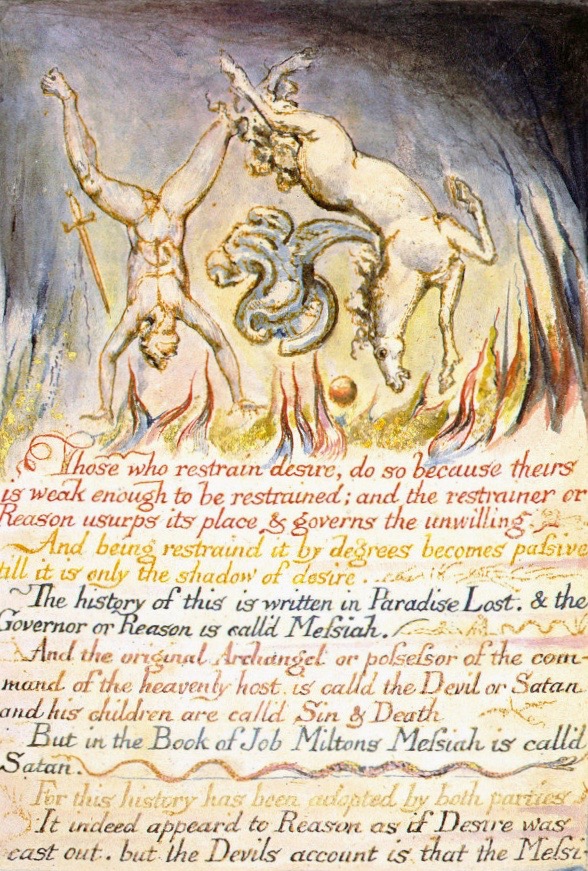 Those who restrain desire, do so because theirs
is weak enough to be restrained; and the restrainer or
Reason usurps its place & governs the unwilling.
And being restraind it by degrees becomes passive
till it is only the shadow of desire.
The history of this is written in Paradise Lost. & the
Governor or Reason is call'd Messiah.
And the original Archangel or possessor of the com
mand of the heavenly host, is calld the Devil or Satan
and his children are call'd Sin & Death
But in the Book of Job Miltons Messiah is call'd
Satan.
For this history has been adopted by both parties
It indeed appear'd to Reason as if Desire was
cast out. but the Devils account is, that the Messi-